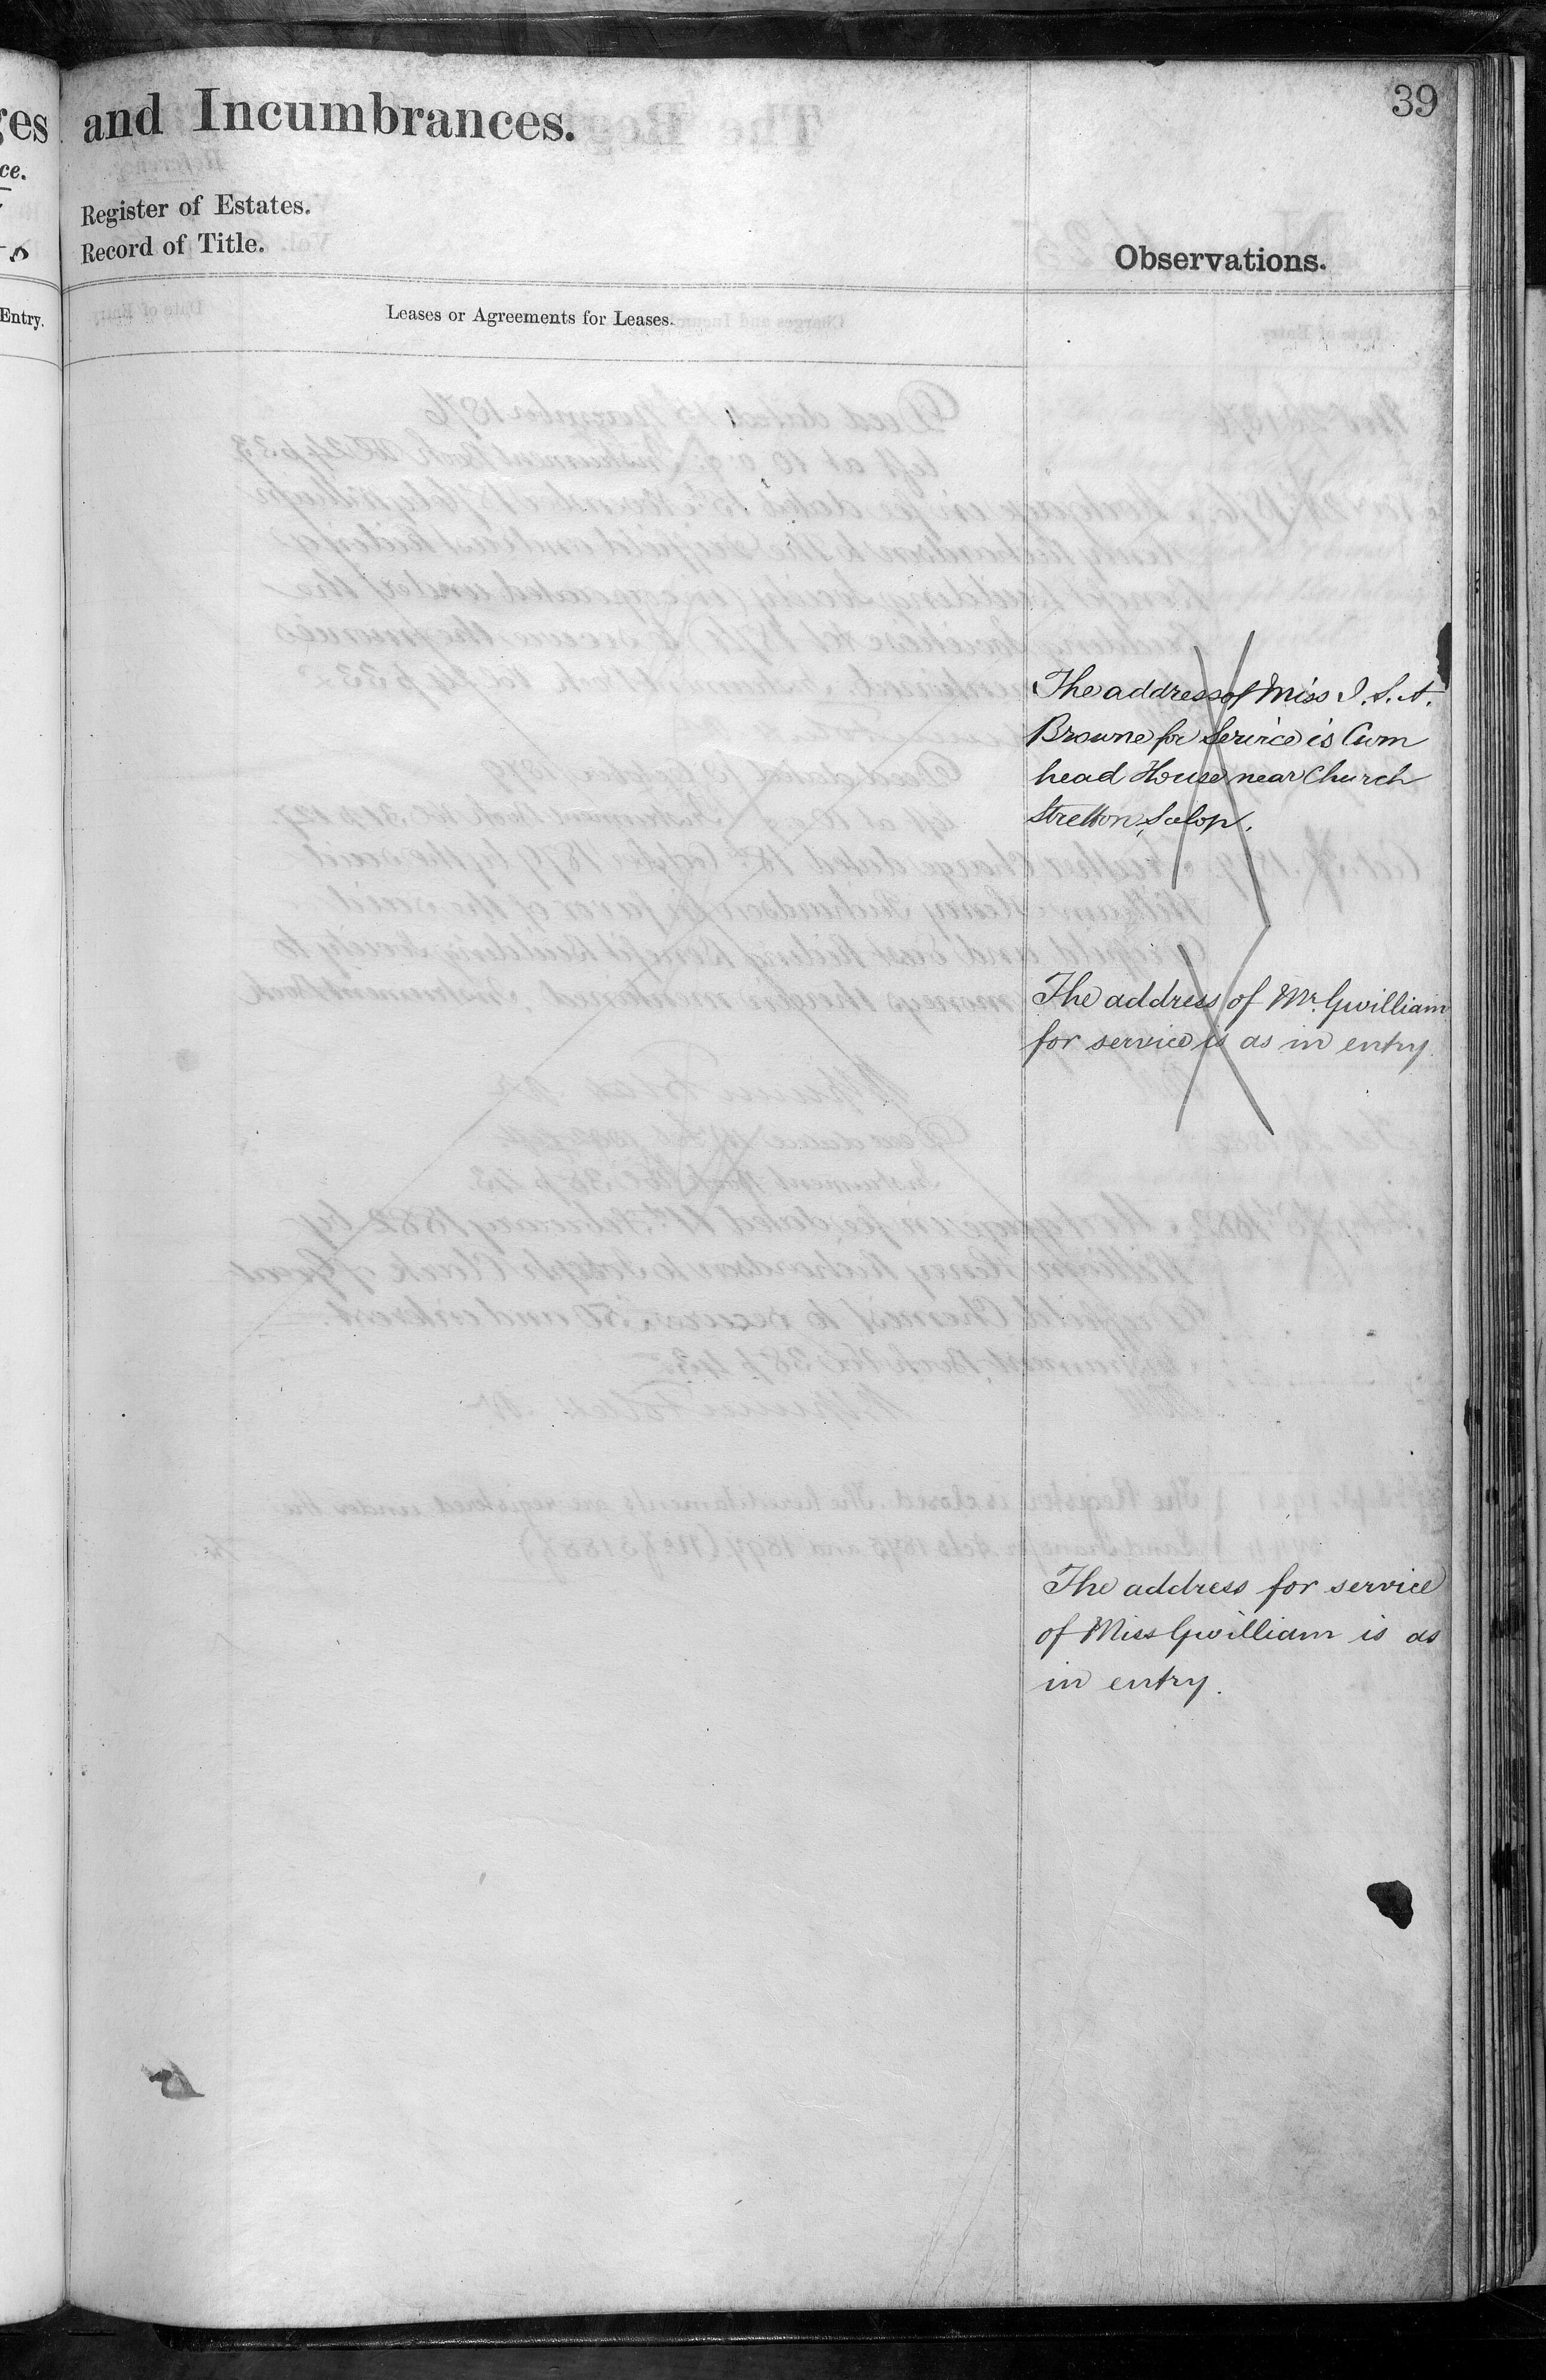 39
ges and Incumbrances.
ce.
Register of Estates.
Record of Title.
Observations.
Entry.
Leases or Agreements for Leases.
The address of Miss I. S. A.
Browne for Service is Cwm
head House near Church
Stretton, Salop.
The address of Mr. Gwilliam
for service is as in entry.
The address for service
of Miss Gwilliam is as
in entry.